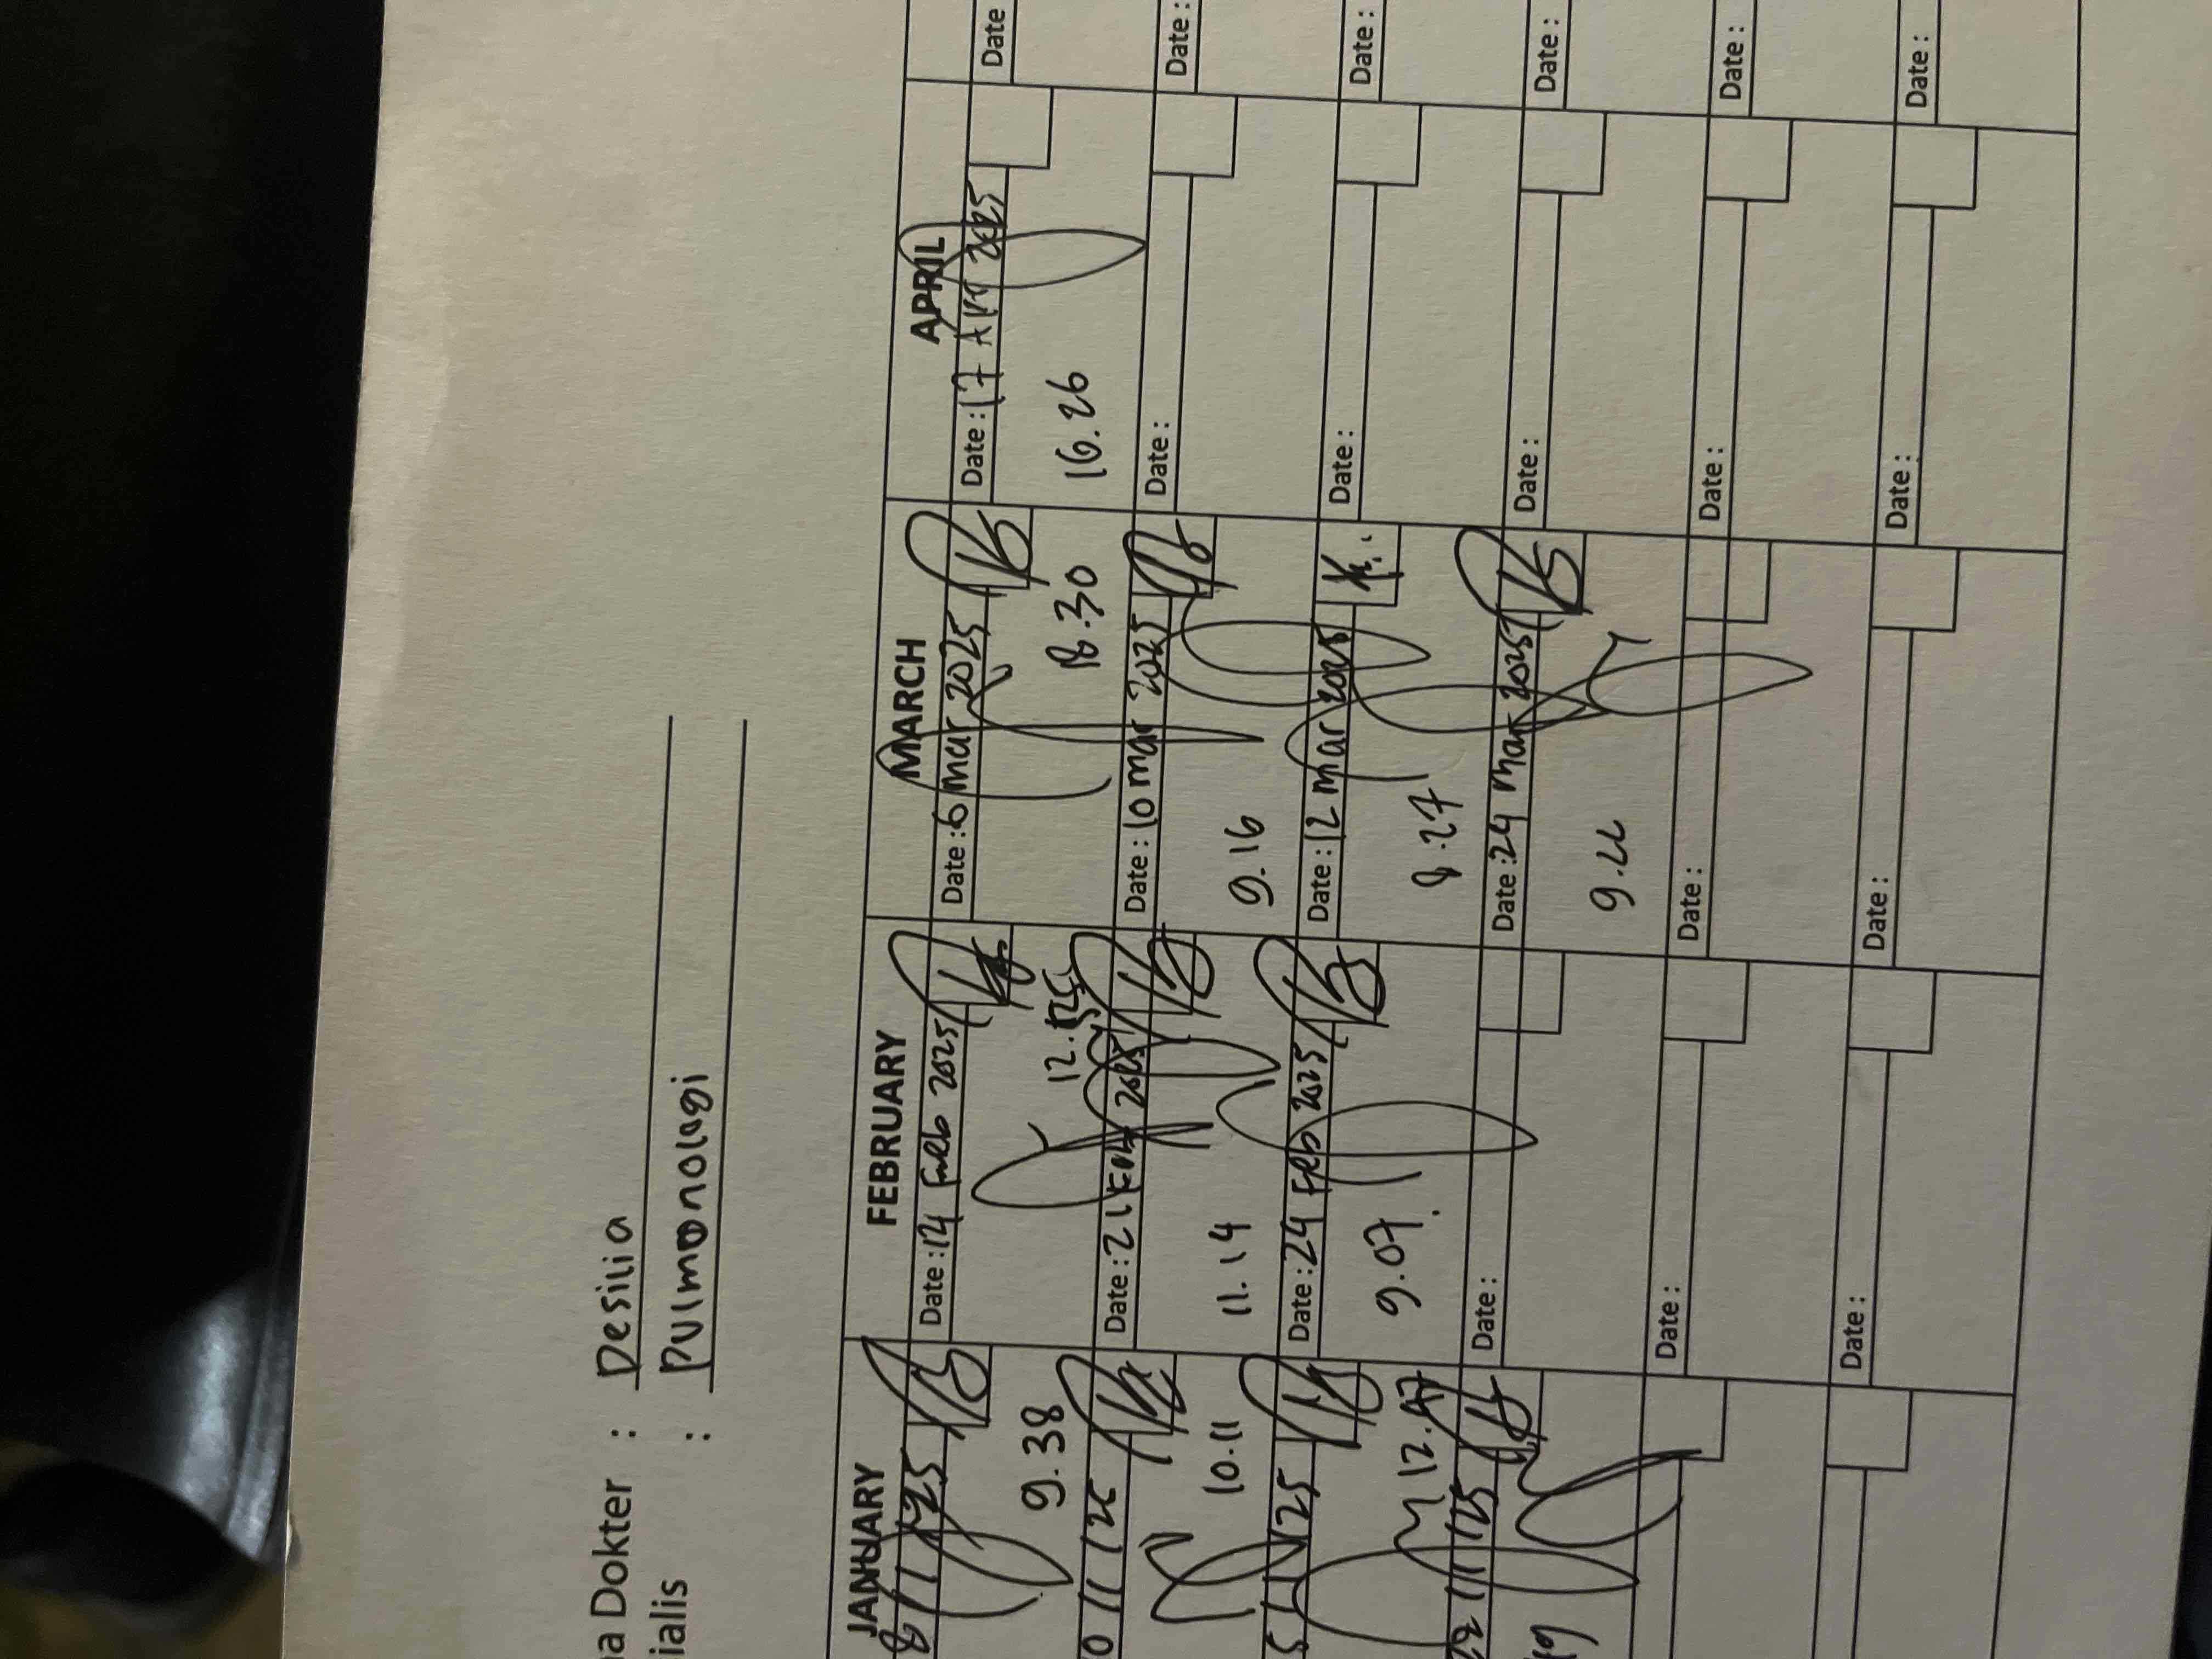 na Dokter : Desilia
ialis : Pulmonologi
JANUARY FEBRUARY MARCH APRIL
8/1/25 Date : 14 Feb 2025 Date : 6 Mar 2025 Date : 17 Apr 2025 Date
9.38 12.55 18.30 16.26
0/1/25 Date : 21 Feb 2025 Date : 10 Mar 2025 Date : Date :
10.11 11.14 9.16
5/1/25 Date : 24 Feb 2025 Date : 12 Mar 2025 Date : Date :
9.07 8.27
22/1/25 Date : Date : 24 Mar 2025 Date : Date :
Date : Date : Date : Date :
Date : Date : Date : Date :